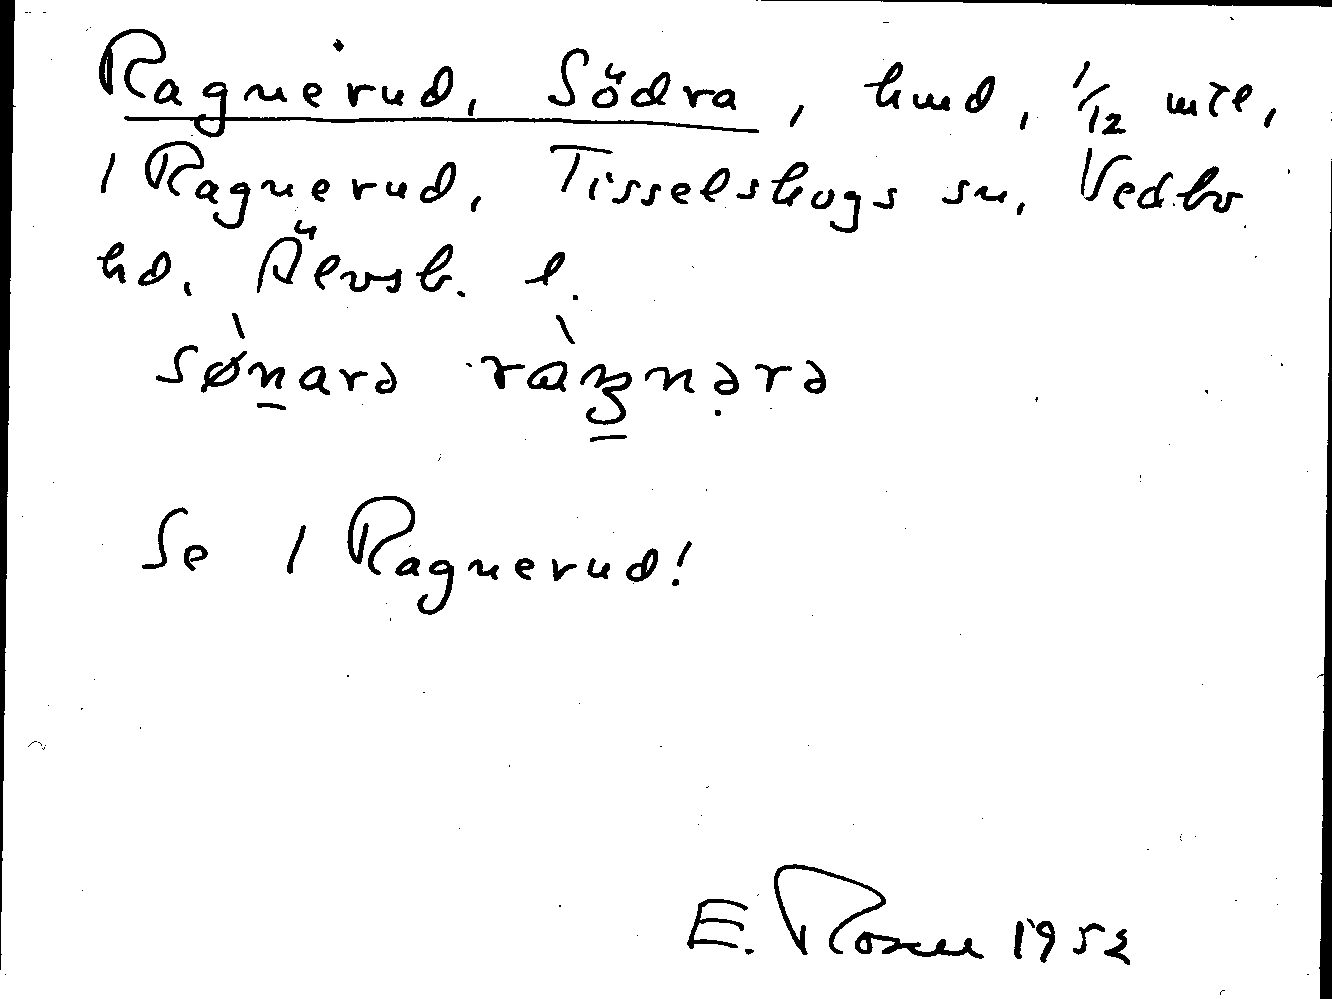 Ragnerud, Södra, hmd, 1/12 mtl,
1 Ragnerud, Tisselskogs sn, Vedbo
hd. Älvsb. l.
sø̀n̲arə ràŋ̲nə̣rə
Se 1 Ragnerud!
E. Rosen 1952